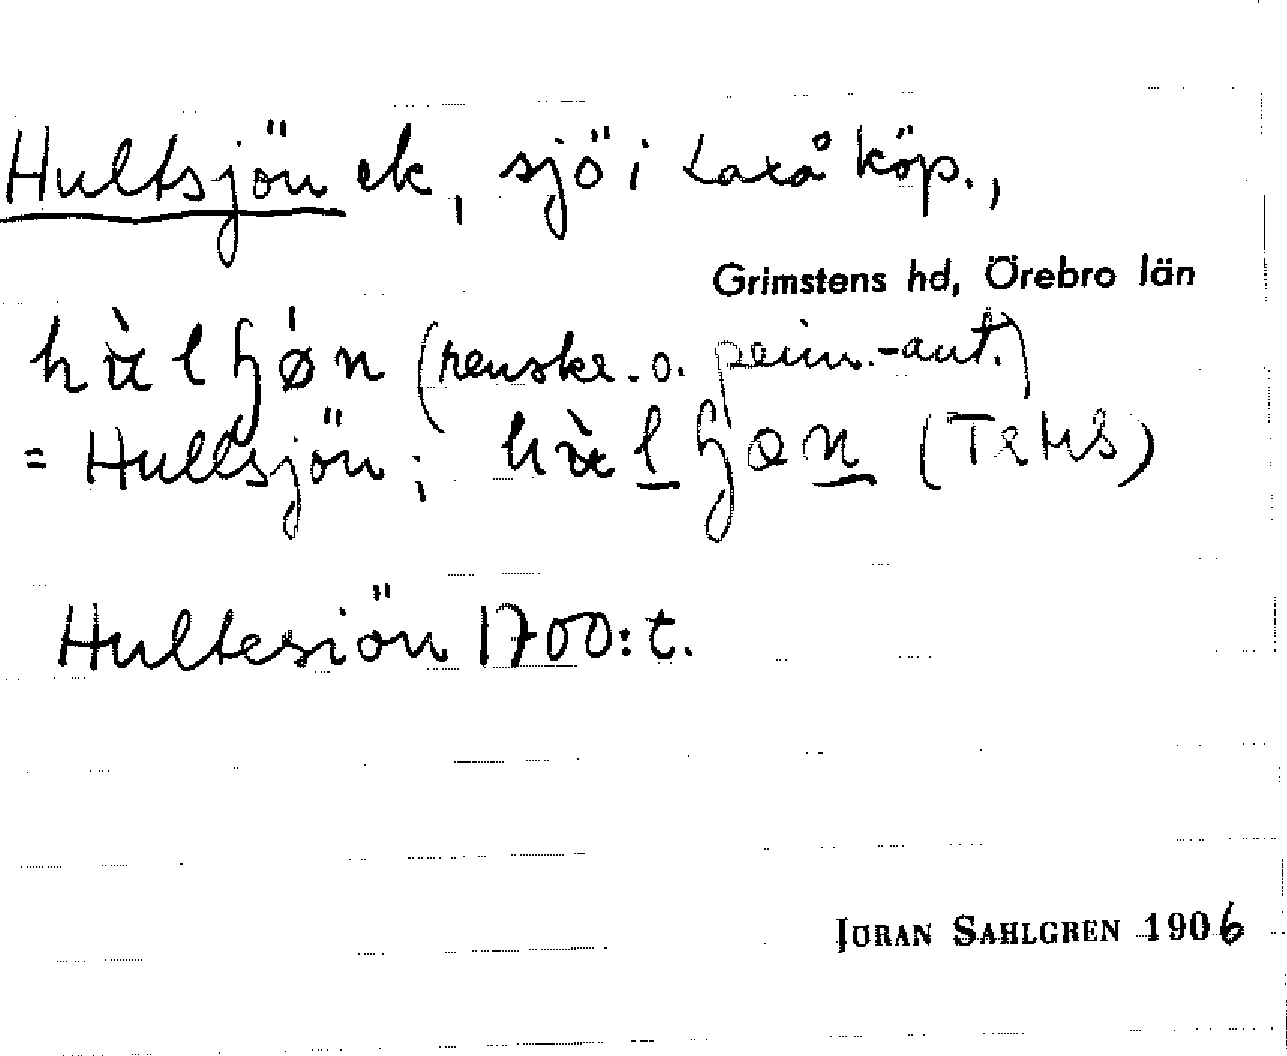 Hultsjön ek, sjö i Laxå köp.,
Grimstens hd, Örebro län
(renskr. o. prim.-ant.)
= Hultsjön; (TeHS)
Hultesiön 1700:t.
JÖRAN SAHLGREN 1906